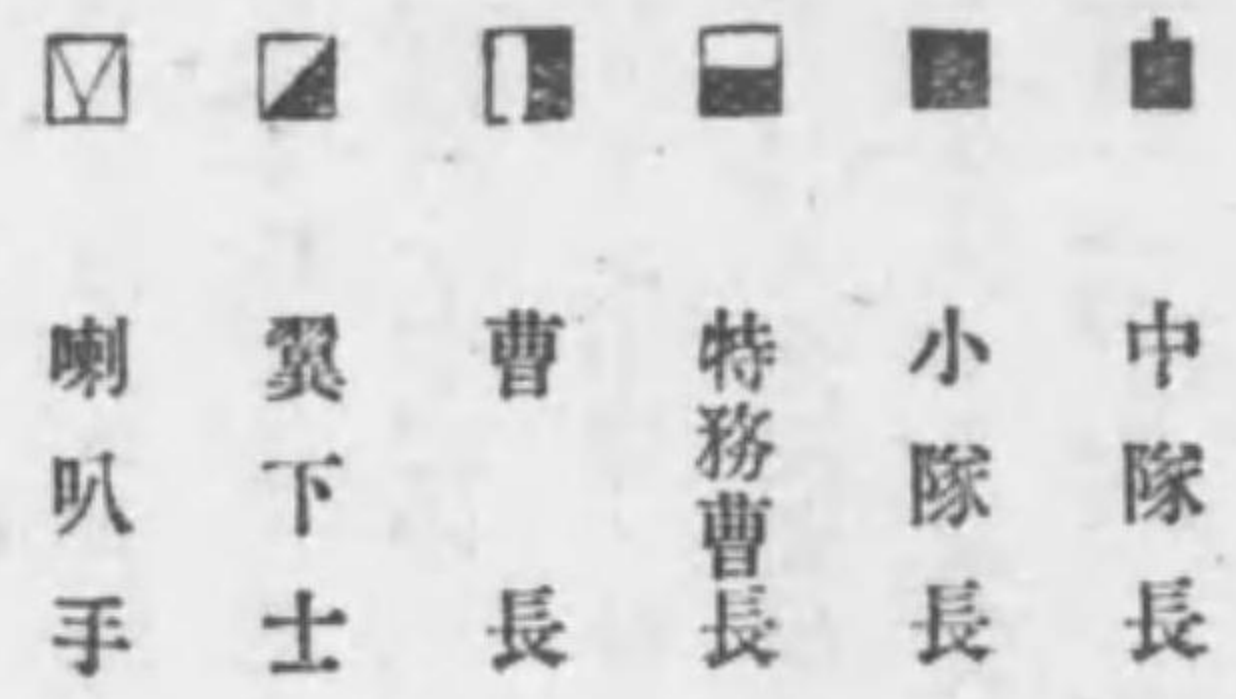 中隊長
小隊長
特務曹長
曹長
翼下士
喇叭手